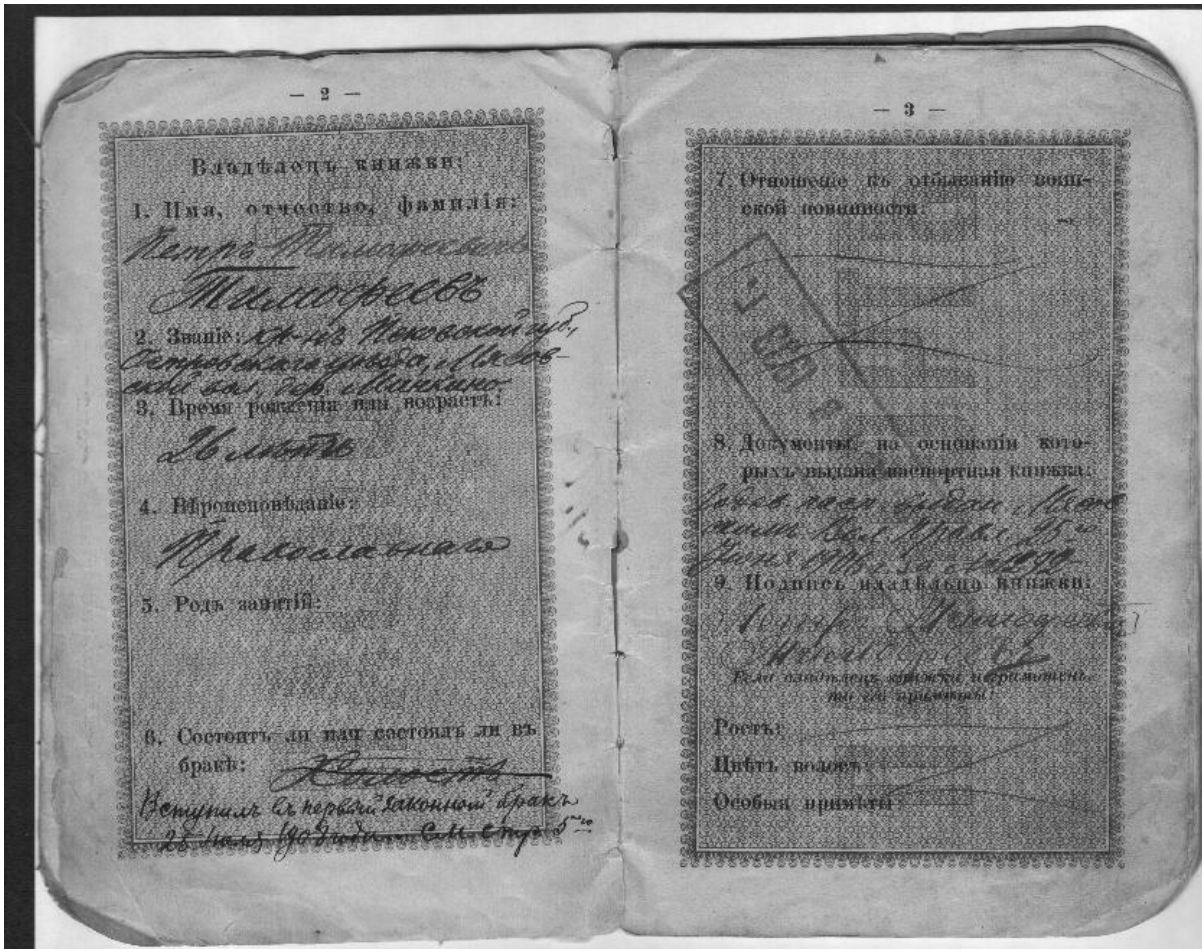 — 2 —
Владѣлецъ книжки:
1. Имя, отчество, фамилія:
Петръ Тимофеевичъ
Тимофеевъ
2. Званіе: кр-нъ Псковской губ,
Островскаго уѣзда,
вол. дер. Минкино
3. Время рожденія или возрастъ:
26 лѣтъ
4. Вѣроисповѣданіе:
Православнаго
5. Родъ занятій:
6. Состоитъ ли или состоялъ ли въ
бракѣ: Холостъ
Вступилъ въ первый законный бракъ
См. стр. 5
— 3 —
7. Отношеніе къ отбыванію воин-
ской повинности:
8. Документы, на основаніи кото-
рыхъ выдана паспортная книжка:
выдан
Вол. Правл. 25
9. Подпись владѣльца книжки:
Петръ Тимофеевъ
Если владѣлецъ книжки неграмотенъ,
то его примѣты:
Ростъ:
Цвѣтъ волосъ:
Особыя примѣты: